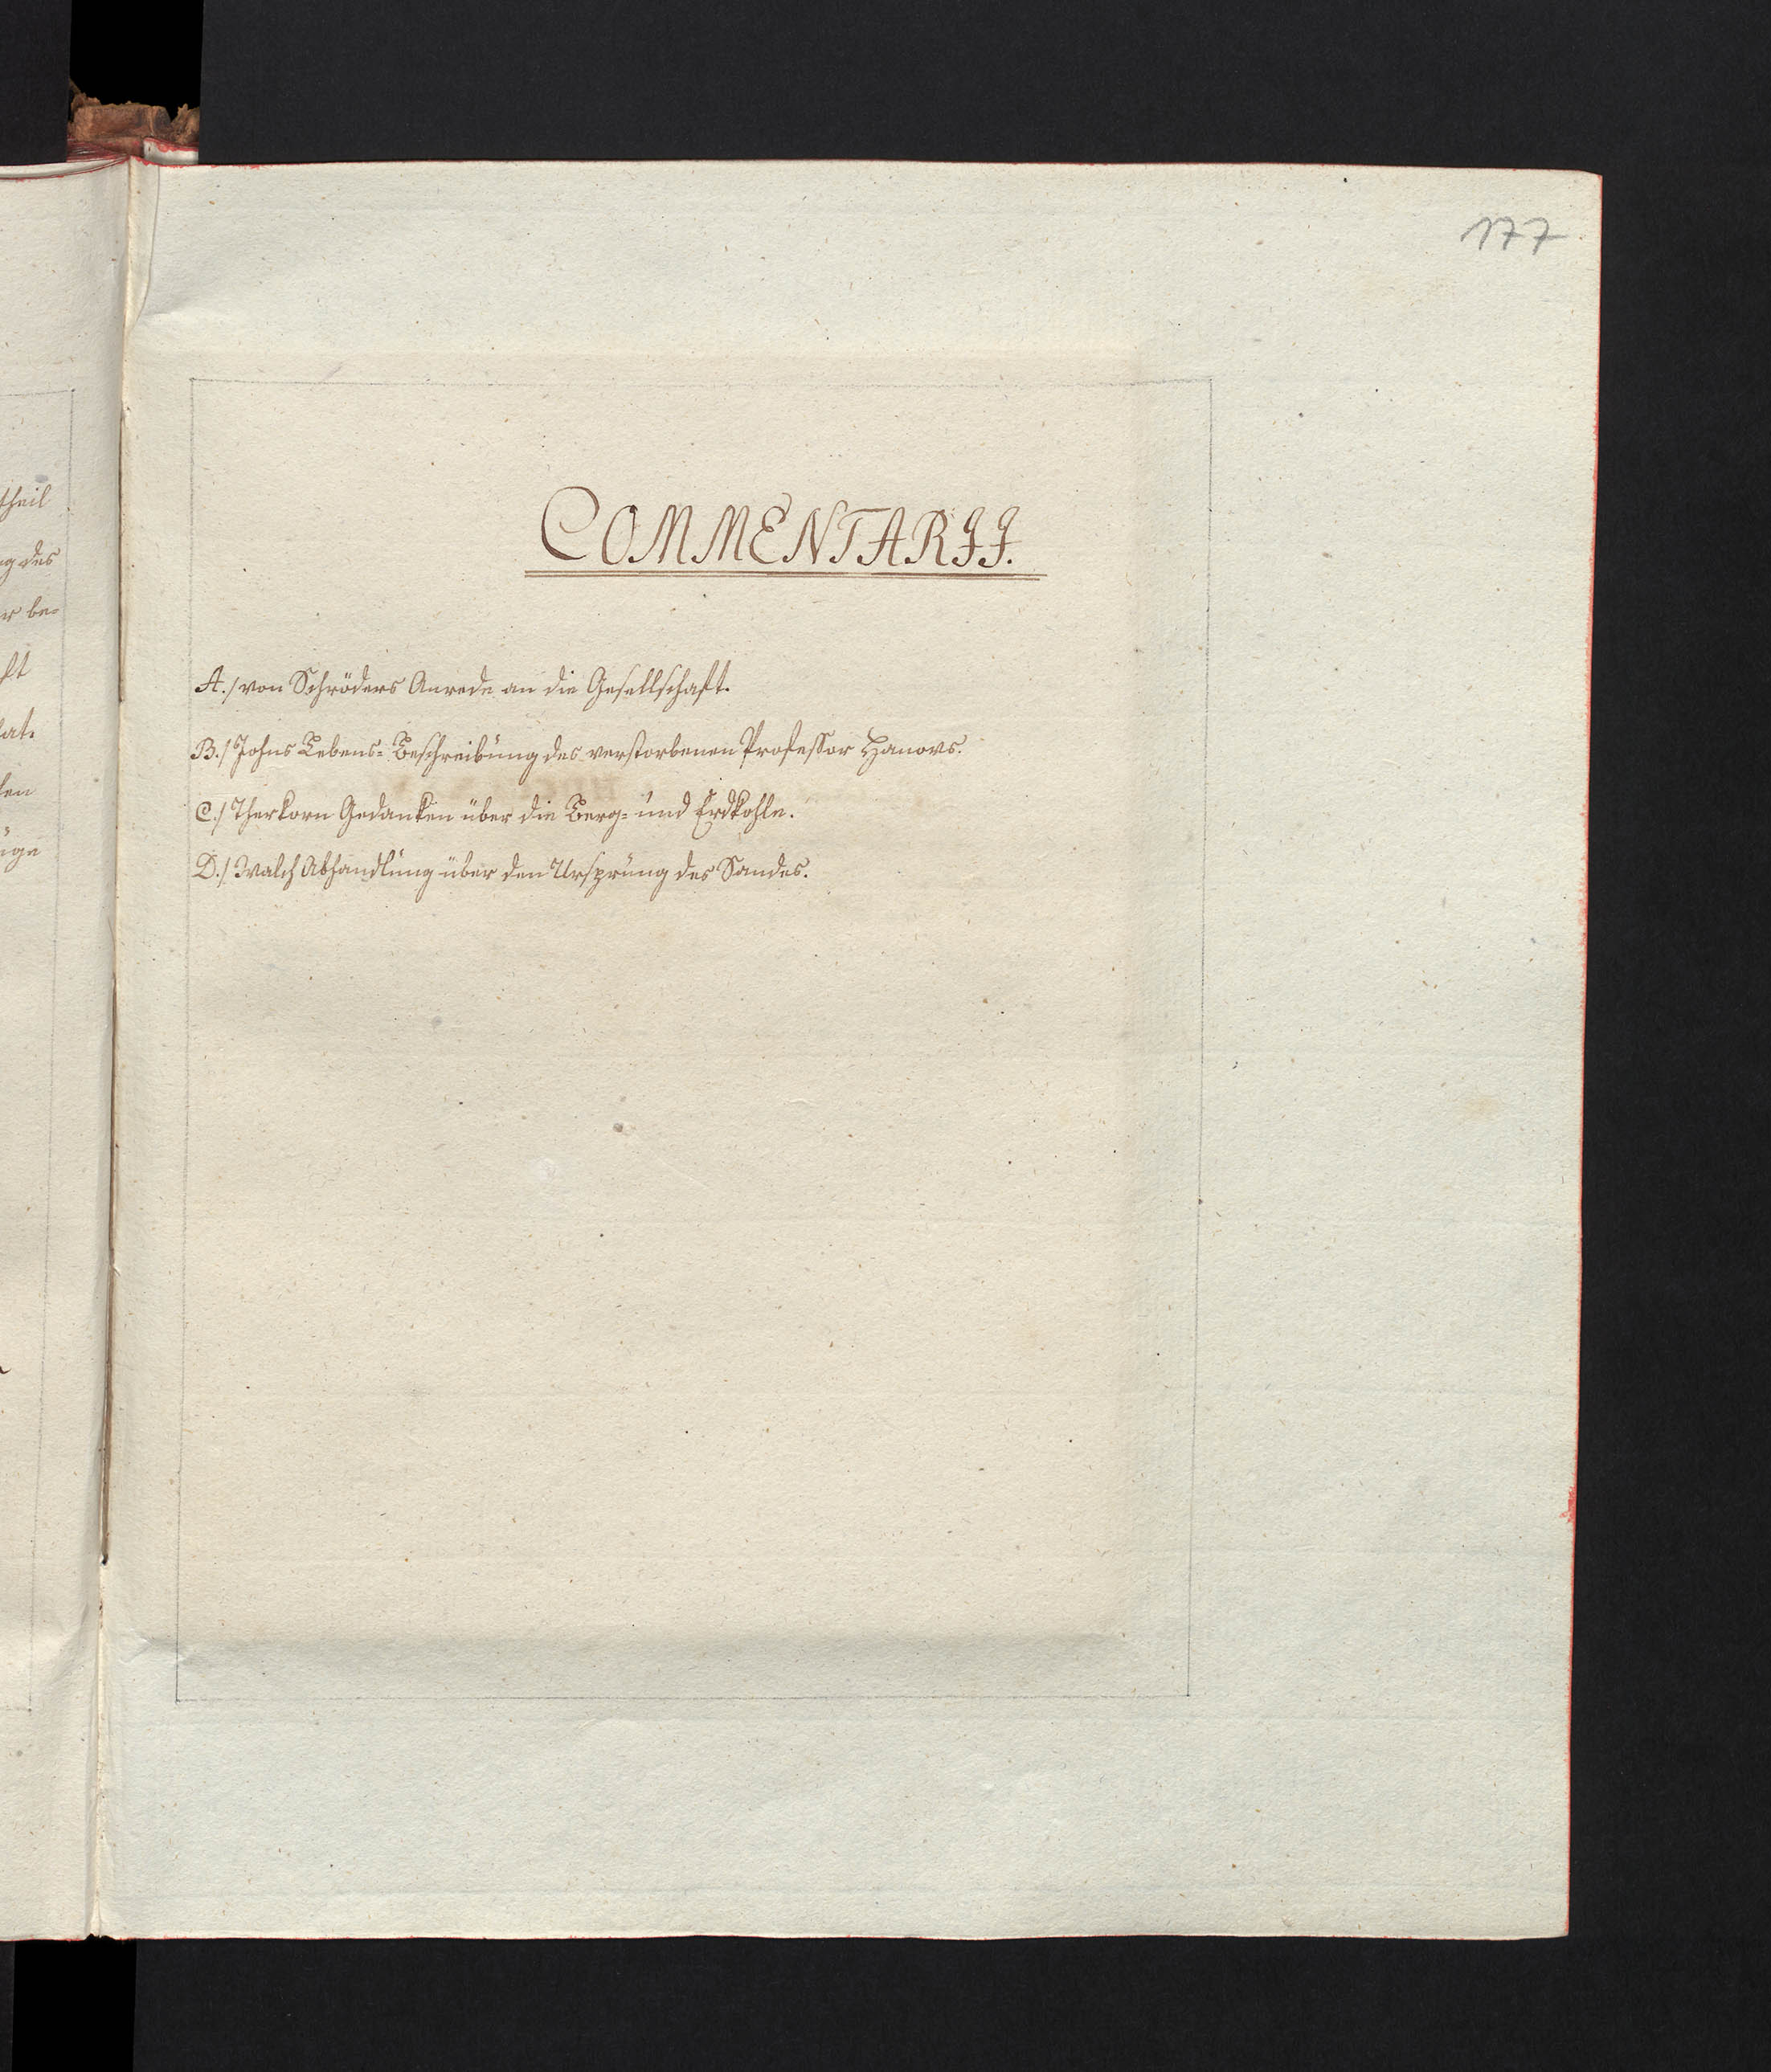 177
COMMENTARII.
A./ von Schröders Anrede an die Gesellschaft.
B./ Johns Lebens-Beschreibung des verstorbenen Professor Hanovs.
C./ Therkorn Gedanken über die Berg- und Erdkohle.
D./ Walch Abhandlung über den Ursprung des Sandes.